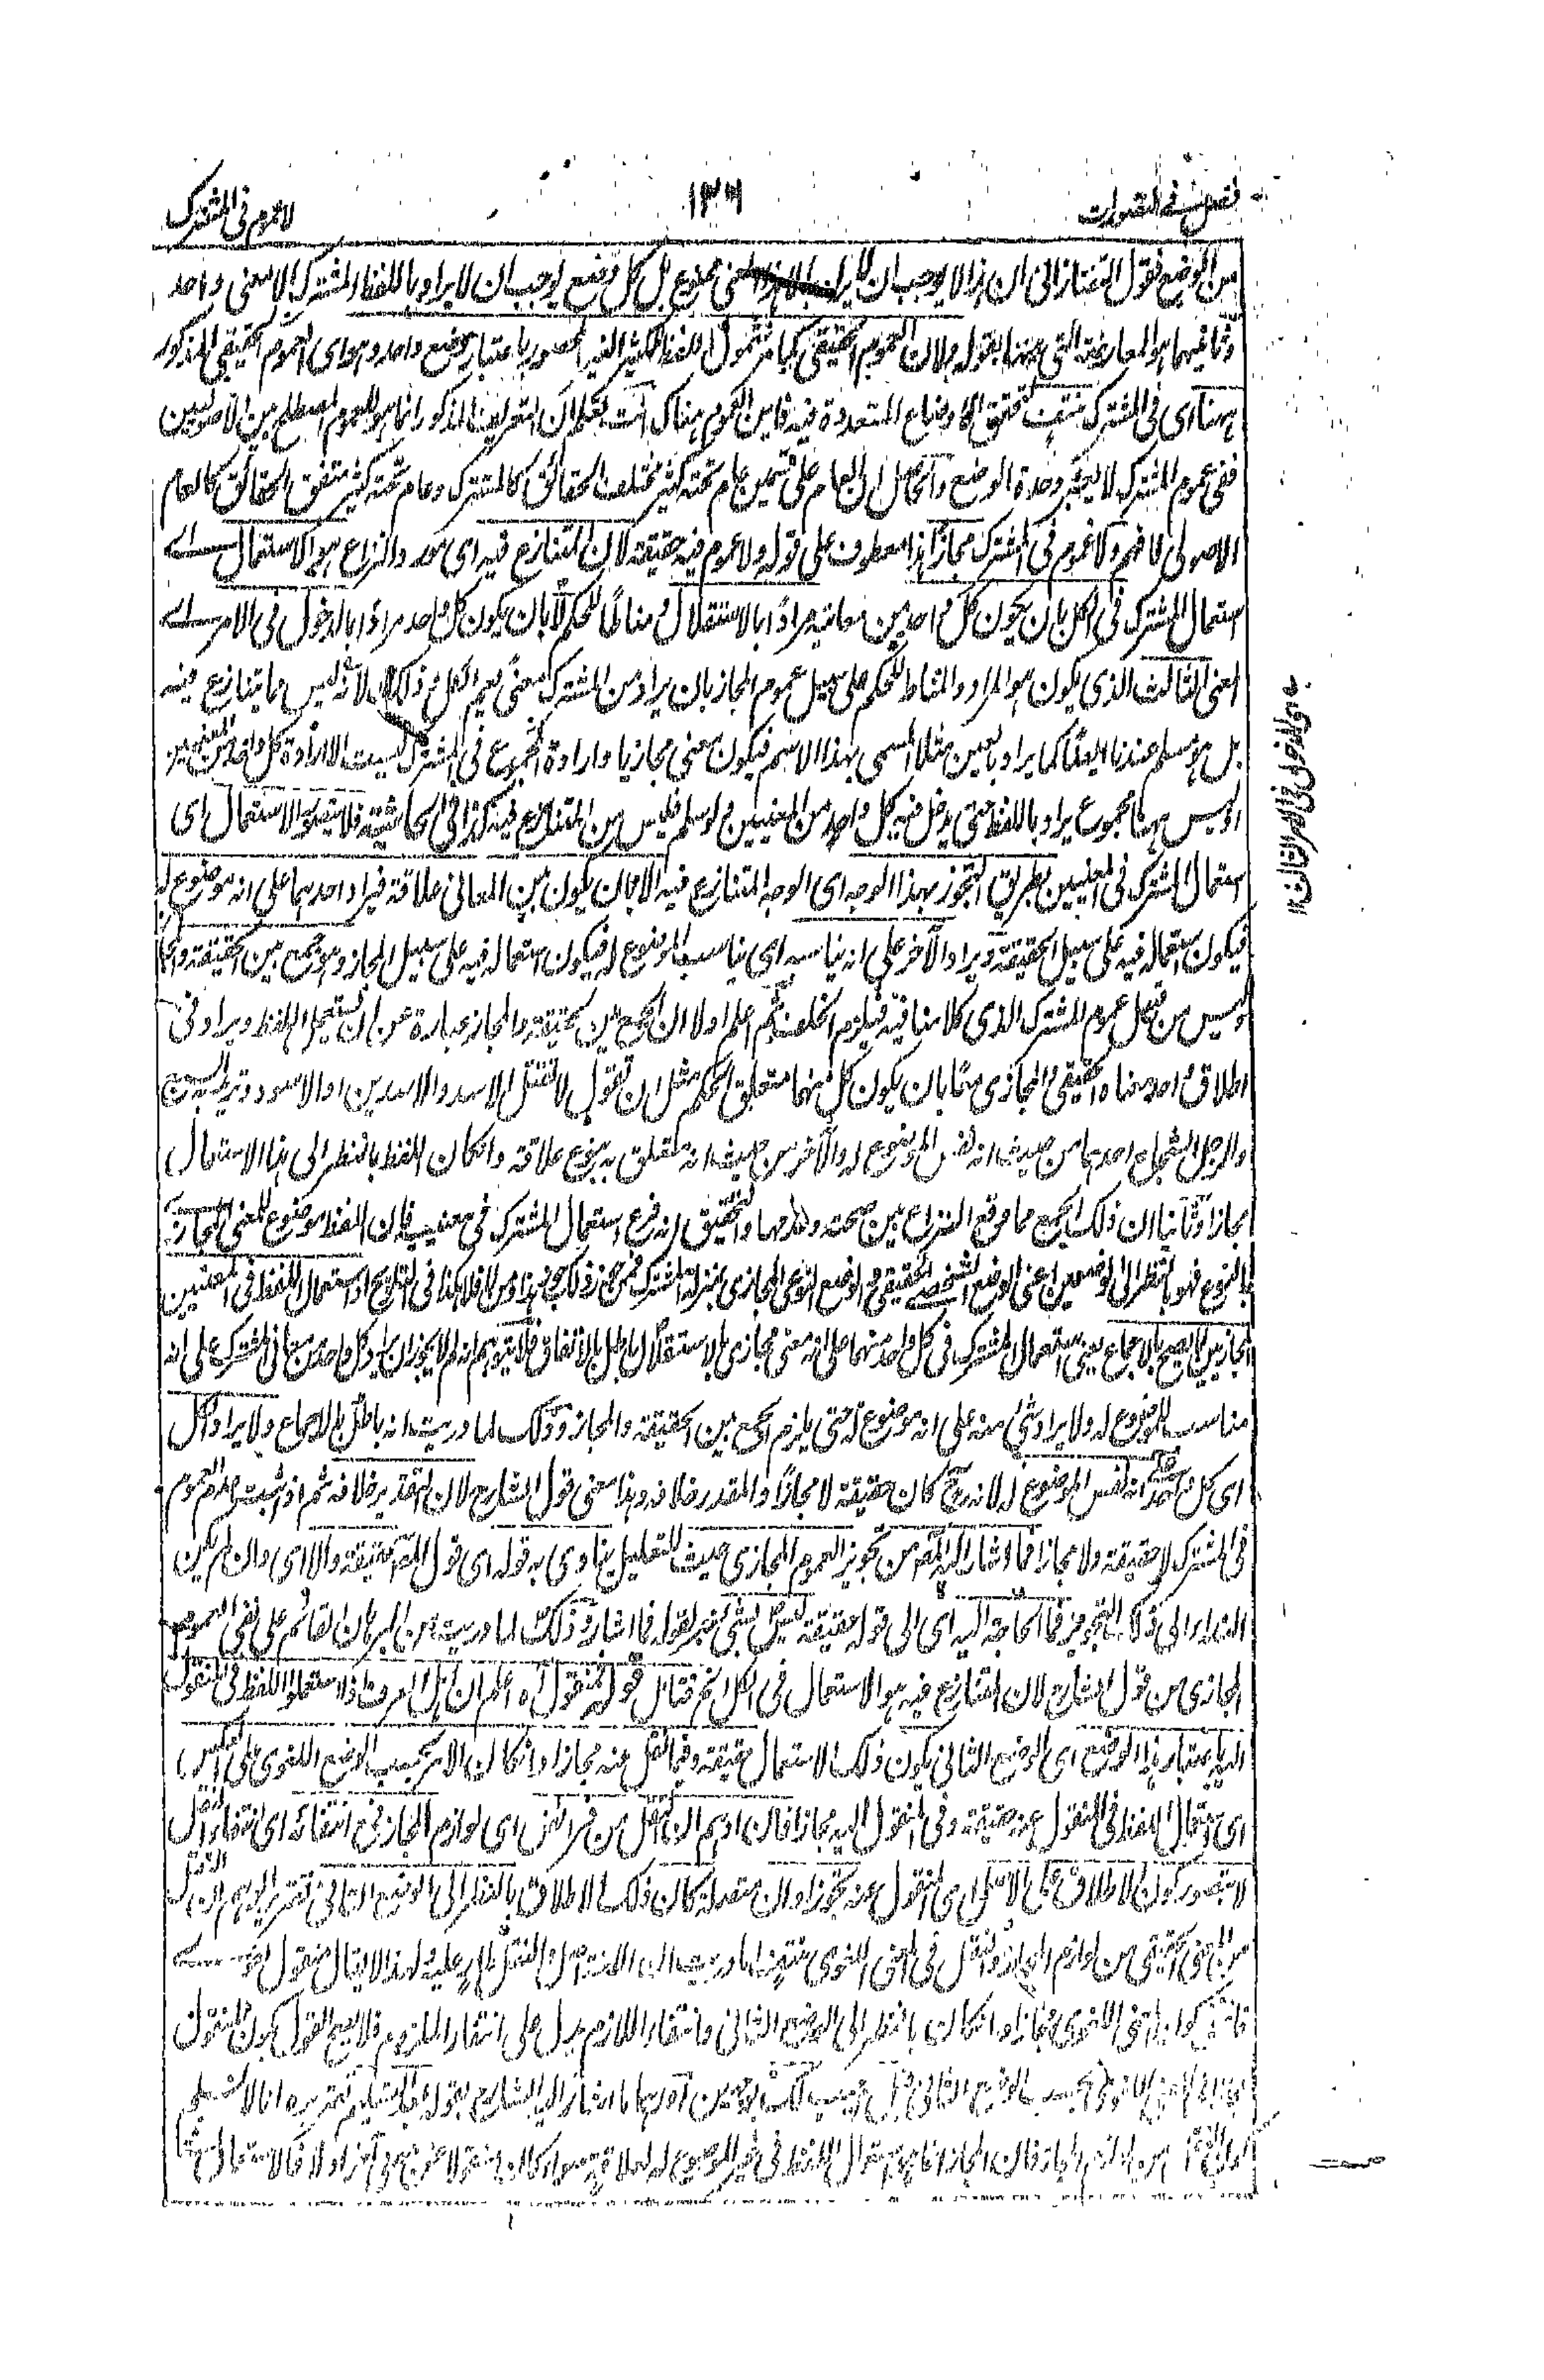 فصل في التصورات
١٣٦
لا عموم في المشترك
من الوضع فقول التفتازاني ان هذا لا يوجب ان لا يراد الا هذا المعنى ممنوع بل كل وضع يوجب ان لا يراد باللفظ المشترك الا معنى واحد
وثانيهما هو المعارضة التي بقوله ولان العموم الحقيقي كما مر شمول اللفظ لكثير الغير المحصور باعتبار وضع واحد وهو اي العموم الحقيقي المذكور
ههنا اي في المشترك منتف لتحقق الاوضاع المتعددة فيه فاين العموم هناك انت تعلم ان التعريف المذكور انما هو للعموم المصطلح من الاصوليين
ففي عموم المشترك لا يعتبر وحدة الوضع والحاصل ان العام على قسمين عام تحته كثير مختلف الحقائق كالمشترك وعام تحته كثير متفق الحقائق كالعام
الاصولي فافهم ولا عموم في المشترك مجازا هذا معطوف على قوله ولا عموم فيه حقيقة لان المتنازع فيه اي مورد النزاع هو الاستعمال اے
استعمال المشترك في الكل بان يكون كل واحد من معانيه مرادا بالاستقلال ومناطا للحكم لا بان يكون كل واحد مرادا بالدخول في الامر اے
المعنى الثالث الذي يكون هو المراد والمناط للحكم على سبيل عموم المجاز بان يراد من المشترك معنى يعم الكل وذلك لانه ليس مما يتنازع فيه
بل هو مسلم عندنا ايضا كما يراد بعين مثلا المسمى بهذا الاسم فيكون معنى مجازيا وارادة المجموع في المشترك ليست الا ارادة كل واحد من المعنيين
اذ ليس ههنا مجموع يراد باللفظ حتى يدخل فيه كل واحد من المعنيين ولو سلم فليس من المتنازع فيه كذا في الحاشية فلا يتصور الاستعمال اي
استعمال المشترك في المعنيين بطريق التجوز بهذا الوجه اي الوجه المتنازع فيه الا بان يكون بين المعاني علاقة فيراد احدهما على انه موضوع له
فيكون استعماله فيه على سبيل الحقيقة ويراد الآخر على انه يناسبه اي يناسب الموضوع له فيكون استعماله فيه على سبيل المجاز وهو جمع بين الحقيقة والمجاز
وليس من قبيل عموم المشترك الذي كلامنا فيه فيلزم الخلف ثم اعلم اولا ان الجمع بين الحقيقة والمجاز عبارة عن ان يستعمل اللفظ ويراد في
اطلاق واحد معناه الحقيقي والمجازي معا بان يكون كل منهما متعلق الحكم مثل ان تقول لا تقتل الاسد او الاسدين او الاسود وتريد السبع
والرجل الشجاع احدهما من حيث انه نفس الموضوع له والآخر من حيث انه متعلق به بنوع علاقة وان كان اللفظ بالنظر الى هذا الاستعمال
مجازا وثانيا ان ذلك الجمع مما وقع النزاع بين صحته وعدمها والتحقيق انه فرع استعمال المشترك في معنييه فان اللفظ موضوع للمعنى المجازي
بالنوع فهو بالنظر الى الوضعين اعني الوضع الشخصي الحقيقي والوضع النوعي المجازي بمنزلة المشترك فمن جوز ذلك جوز هذا ومن لا فلا كذا في التلويح او استعمال اللفظ في المعنيين
المجازيين لا يصح بالاجماع يعني استعمال المشترك في كل واحد منهما على انه معنى مجازي بالاستقلال باطل بالاتفاق فلا يتوهم انه لم لا يجوز ان يراد كل واحد من معاني المشترك على انه
مناسب للموضوع له ولا يراد شيء منه على انه موضوع له حتى يلزم الجمع بين الحقيقة والمجاز وذلك لما دريت انه باطل بالاجماع ولا يراد كل
اي كل واحد على انه نفس الموضوع له لانه ح كان حقيقة لا مجازا والمقدر خلافه وهذا معنى قول الشارح لان التقدير خلافه ثم اذ ثبت عدم العموم
في المشترك لا حقيقة ولا مجازا فما اشار اليه المص من تجويز العموم المجازي حيث التعليل ينادي به قوله اي قول المص حقيقة والا اي وان لم يكن
النداء الى ذلك التجويز فما الحاجة اليه اي الى قوله حقيقة ليس بشيء خبر لقوله فما اشار وذلك لما دريت من البرهان القائم على نفي العموم
المجازي من قول الشارح لان المتنازع فيه هو الاستعمال في الكل الخ فتامل قوله فمنقول آه اعلم ان اهل العرف اذا استعملوا اللفظ في المنقول
اليه باعتبار هذا الوضع اي الوضع الثاني يكون ذلك الاستعمال حقيقة وفيما نقل عنه مجازا وان كان الامر بحسب الوضع اللغوي على العكس
اي استعمال اللفظ في المنقول عنه حقيقة وفي المنقول اليه مجازا فان اوهم ان النقل من فرائض اي لوازم المجاز فمع انتفائه اي انتفاء النقل
لا يتصور كون الاطلاق على الاصل اي المنقول عنه تجوزا وان كان ذلك الاطلاق بالنظر الى الوضع الثاني تقرير الوهم ان النقل
من المعنى الحقيقي من لوازم المجاز والنقل في المعنى اللغوي منتف لما دريت ان
كون المعنى اللغوي مجازا وان كان بالنظر الى الوضع الثاني وانتفاء اللازم يدل على انتفاء الملزوم فلا يصح القول بكون المنقول
بحسب الوضع الثاني بوجهين آه ما اشار اليه الشارح بقوله تقريره انا لا نسلم
من لوازم المجاز فان المجاز استعمال اللفظ في غير الموضوع له لعلاقة سواء كان آخر اولا
اي الدخول في الامر الثالث ١٢